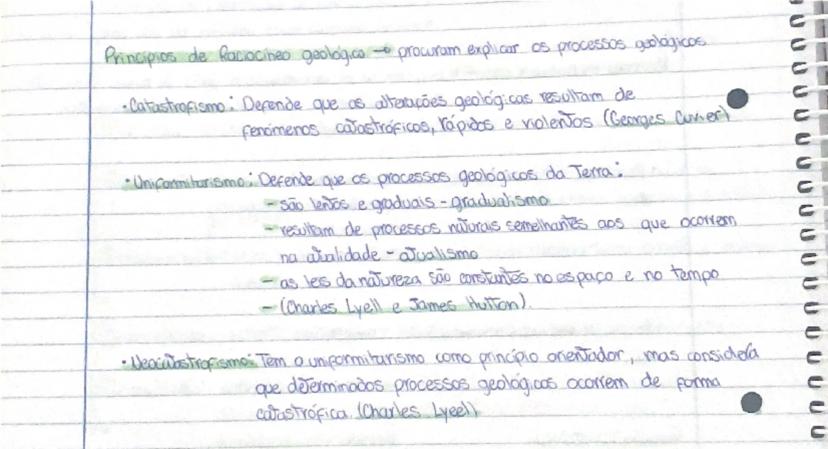 Princípios de Raciocíneo geológico → procuram explicar os processos geológicos
• Catastrofismo: Defende que as alterações geológicas resultam de
fenómenos catastróficos, rápidos e violentos (Georges Cuvier)
• Uniformitarismo: Defende que os processos geológicos da Terra:
- são lentos e graduais - gradualismo
- resultam de processos naturais semelhantes aos que ocorrem
na atualidade - atualismo
- as leis da natureza são constantes no espaço e no tempo
- (Charles Lyell e James Hutton).
• Neocatastrofismo: Tem o unformitarismo como princípio orientador, mas considera
que determinados processos geológicos ocorrem de forma
catastrófica (Charles Lyeel)